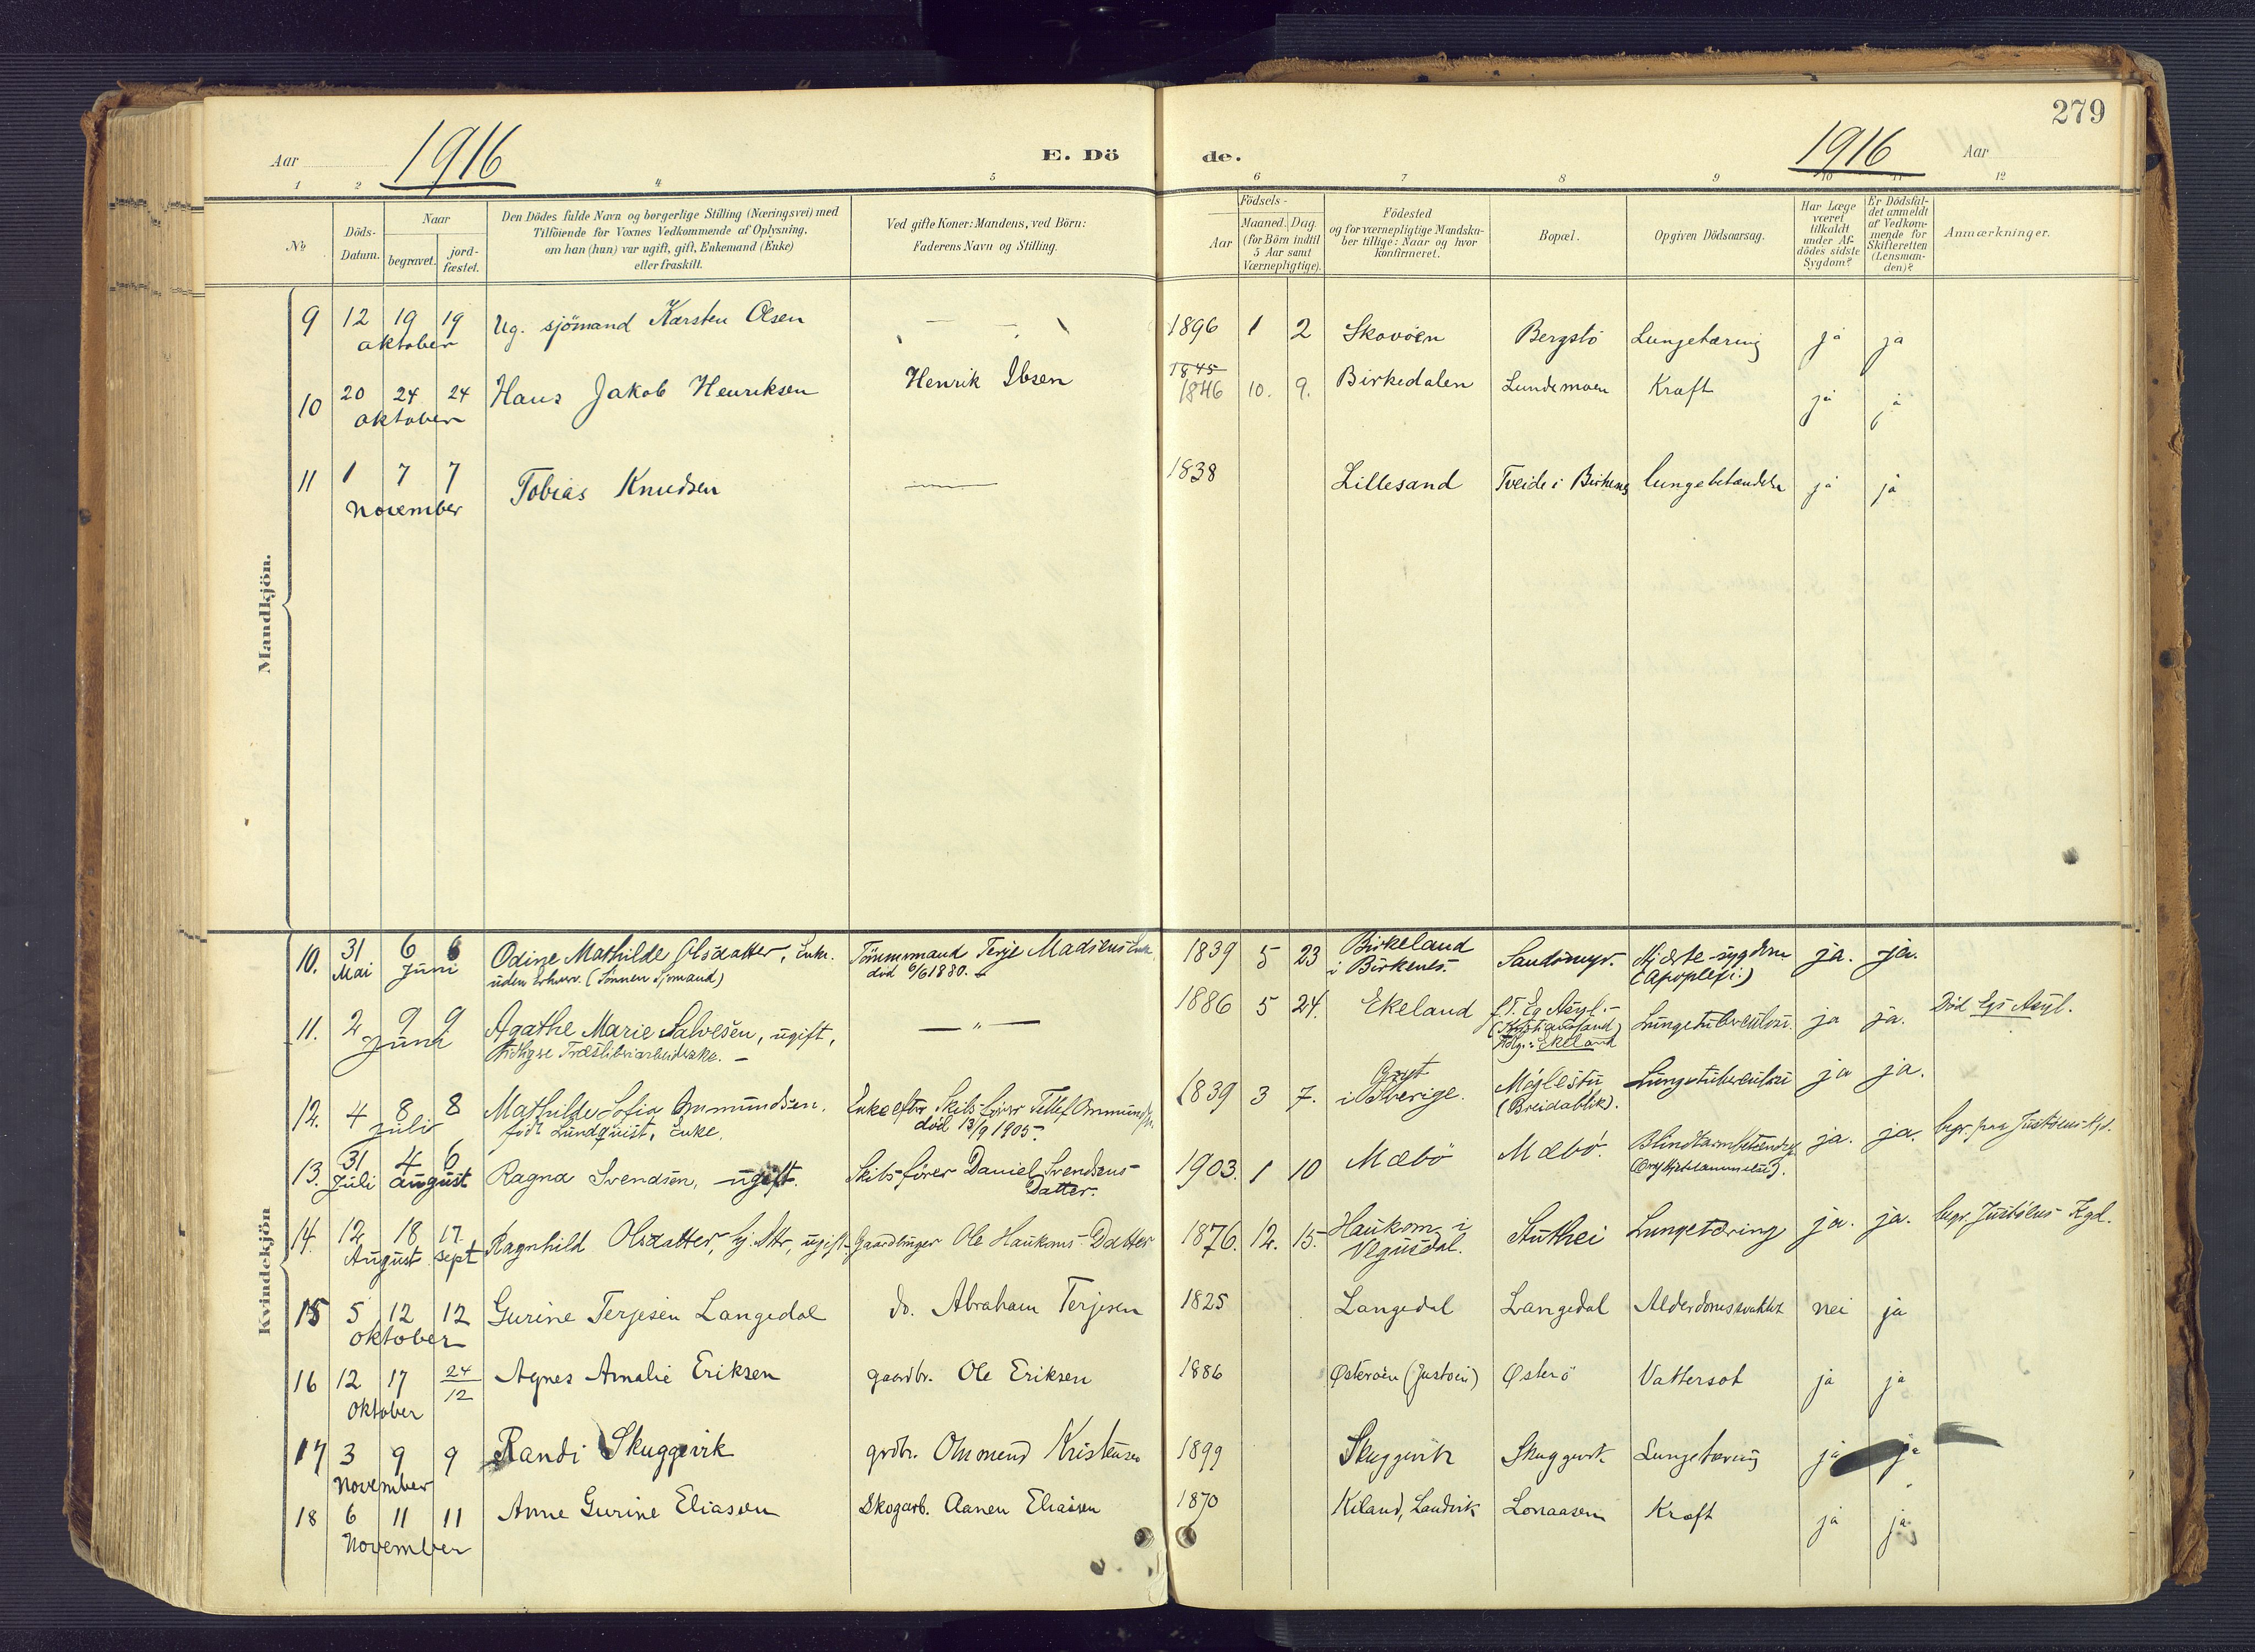 279
Aar 1916 E. Dö de. 1916 Aar
1 2 4 5 6 7 8 9 10 11 12
No
Döds-Datum.
Naar
begravet.
jord-fæstet.
Den Dödes fulde Navn og borgerlige Stilling (Næringsvei) med
Tilföiende for Voxnes Vedkommende af Oplysning,
om han (hun) var ugift, gift, Enkemand (Enke)
eller fraskilt.
Ved gifte Koner: Mandens, ved Börn:
Faderens Navn og Stilling.
Födsels-
Aar
Maaned. Dag.
(for Börn indtil
5 Aar samt
Værnepligtige).
Födested
og for værnepligtige Mandska-
ber tillige: Naar og hvor
konfirmeret.
Bopæl.
Opgiven Dödsaarsag.
Har Læge
været
tilkaldt
under Af-
dödes sidste
Sygdom?
Er Dödsfal-
det anmeldt
af Vedkom-
mende for
Skifteretten
(Lensman-
den)?
Anmærkninger.
Mandkjön.
9 12 19 19 Ug. sjömand Karsten Olsen — — 1896 1 2 Skovöen Bergstö Lungetæring ja ja
oktober
10 20 24 24 Hans Jakob Henriksen Henrik Ibsen 1845 1846 10. 9. Birkedalen Lundemoen Kræft ja ja
oktober
11 1 7 7 Tobias Knudsen — 1838 Lillesand Tveide i Birkenes lungebetændelse ja ja
november
Kvindekjön
10. 31 6 6 Odine Mathilde Olsdatter, Enke. Tömmermand Terje Madsens Enke. 1839 5 23 Birkeland Sandsmyr. Hjerte-sygdom ja. ja.
Mai Juni uden Erhverv. (Sönnen Sjömand) död 6/6 1880. i Birkenes. (Apoplexi.)
11. 2 9 9 Agathe Marie Salvesen, ugift, — " — 1886 5 24. Ekeland f.T. Eg Asyl. Lungetuberculosi. ja ja. Död Egs Asyl.
Juni (Kristiansand)
Ekeland
12. 4 8 8 Mathilde Sofia Ommundsen. Enke efter Skibsförer Tellef Ommundsen 1839 3 7. Gryt Möglestu Lungetuberculosi ja ja.
juli født Lundquist, Enke. död 13/9 1905. i Sverige. (Breidablik).
13. 31 4 6 Ragna Svendsen, ugift. Skibsförer Daniel Svendsens 1903. 1 10 Mæbö Mæbö. Blindtarmbetændelse ja. ja. begr. paa Justöens Kgd.
Juli august Datter.
14. 12 18 17. Ragnhild Olsdatter, ugift Gaardbruger Ole Haukoms Datter 1876. 12. 15. Haukom i Stuthei Lungetæring ja. ja. begr. Justöens Kgd.
August sept Vegusdal.
15 5 12 12 Gurine Terjesen Langedal do. Abraham Terjesen 1825 Langedal Langedal Alderdomssvakhet nei ja
oktober
16 12 17 24/12 Agnes Amalie Eriksen gaardbr. Ole Eriksen 1886 Østeroen (Justoen) Østerö Vattersot ja ja
oktober
17 3 9 9 Randi Skuggevik grdbr. Ommund Kristensen 1899 Skuggevik Skuggevik Lungetæring ja ja
November
18 6 11 11 Anne Gurine Eliassen Skogarb. Aanen Eliassen 1870 Kiland, Landvik Lonaasen Kræft ja ja
November